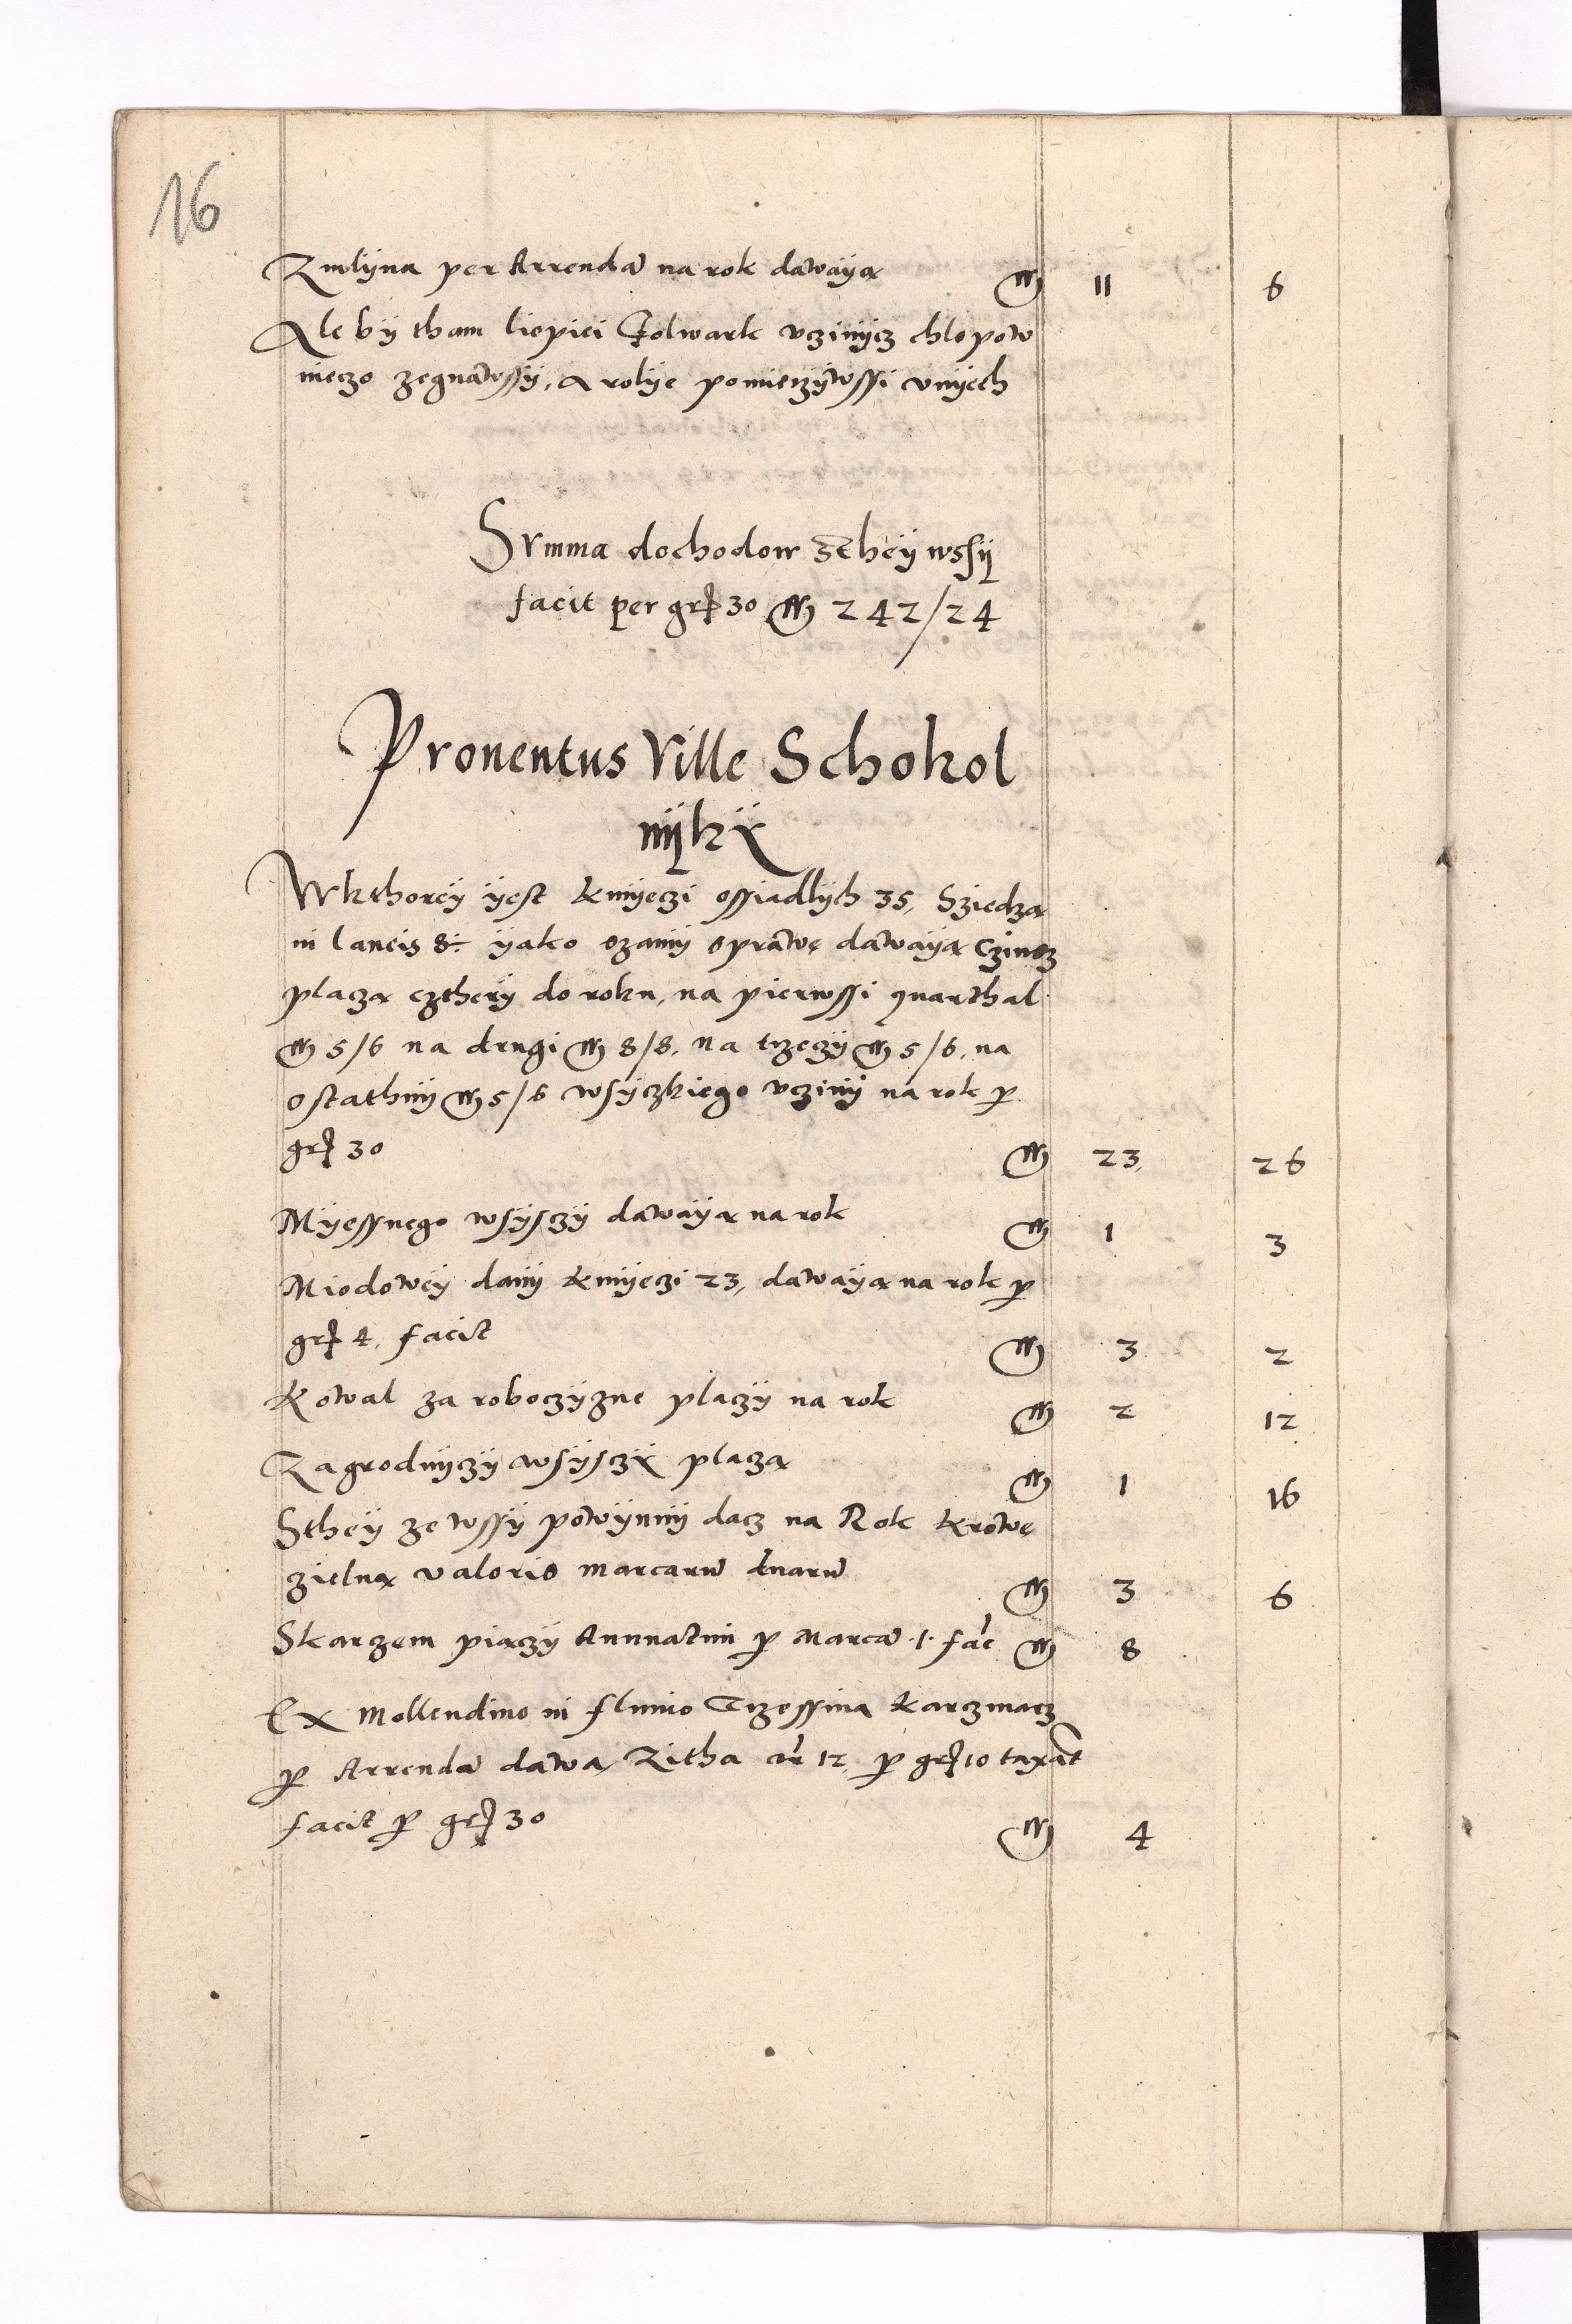 16
Zmlÿna per Arrendā na rok dawaÿą m 11 6
Ale bÿ tham liepiei Folwark vczinÿcz chlopow
nieczo zegnawssÿ, A rolÿe pomierzÿwssi vnÿech
Svmma dochodow ztheÿ wssÿ
facit per gr 30 m 242/24
Proventus Ville Schokol
nÿkÿ
Wkthoreÿ ÿest kmÿeczi ossiadlÿch 35, Sziedzą
in laneis 8 ÿako ozanÿ oprawę dawaÿą Czinsz
placzą czterÿ do roku, na pierwssi quarthal
m 5/6 na drugi m 8/8, na trzeczÿ m 5/6, na
ostathnÿ m 5/6 wsÿczkiego vczinÿ na rok p
gr 30 m 23 26
Mÿessnego wsÿsczÿ dawaÿą na rok m 1 3
Miodoweÿ danÿ kmÿeczi 23, dawaÿą na rok p
gr 4, facit m 3 2
Kowal za roboczÿzne placzÿ na rok m 2 12
Zagrodnÿczÿ wsÿsczÿ placzą m 1 16
Stheÿ ze wssÿ powÿnnÿ dacz na Rok krowę
zielną valoris marcarū duarū m 3 6
Skarczem piączÿ Annuatim p Marcā 1 fac m 8
Ex Mollendino in fluuio Trzessina karczmarz
p Arrendā dawa Zitha cor 12, p gr 10 taxāt
facit p gr 30 m 4